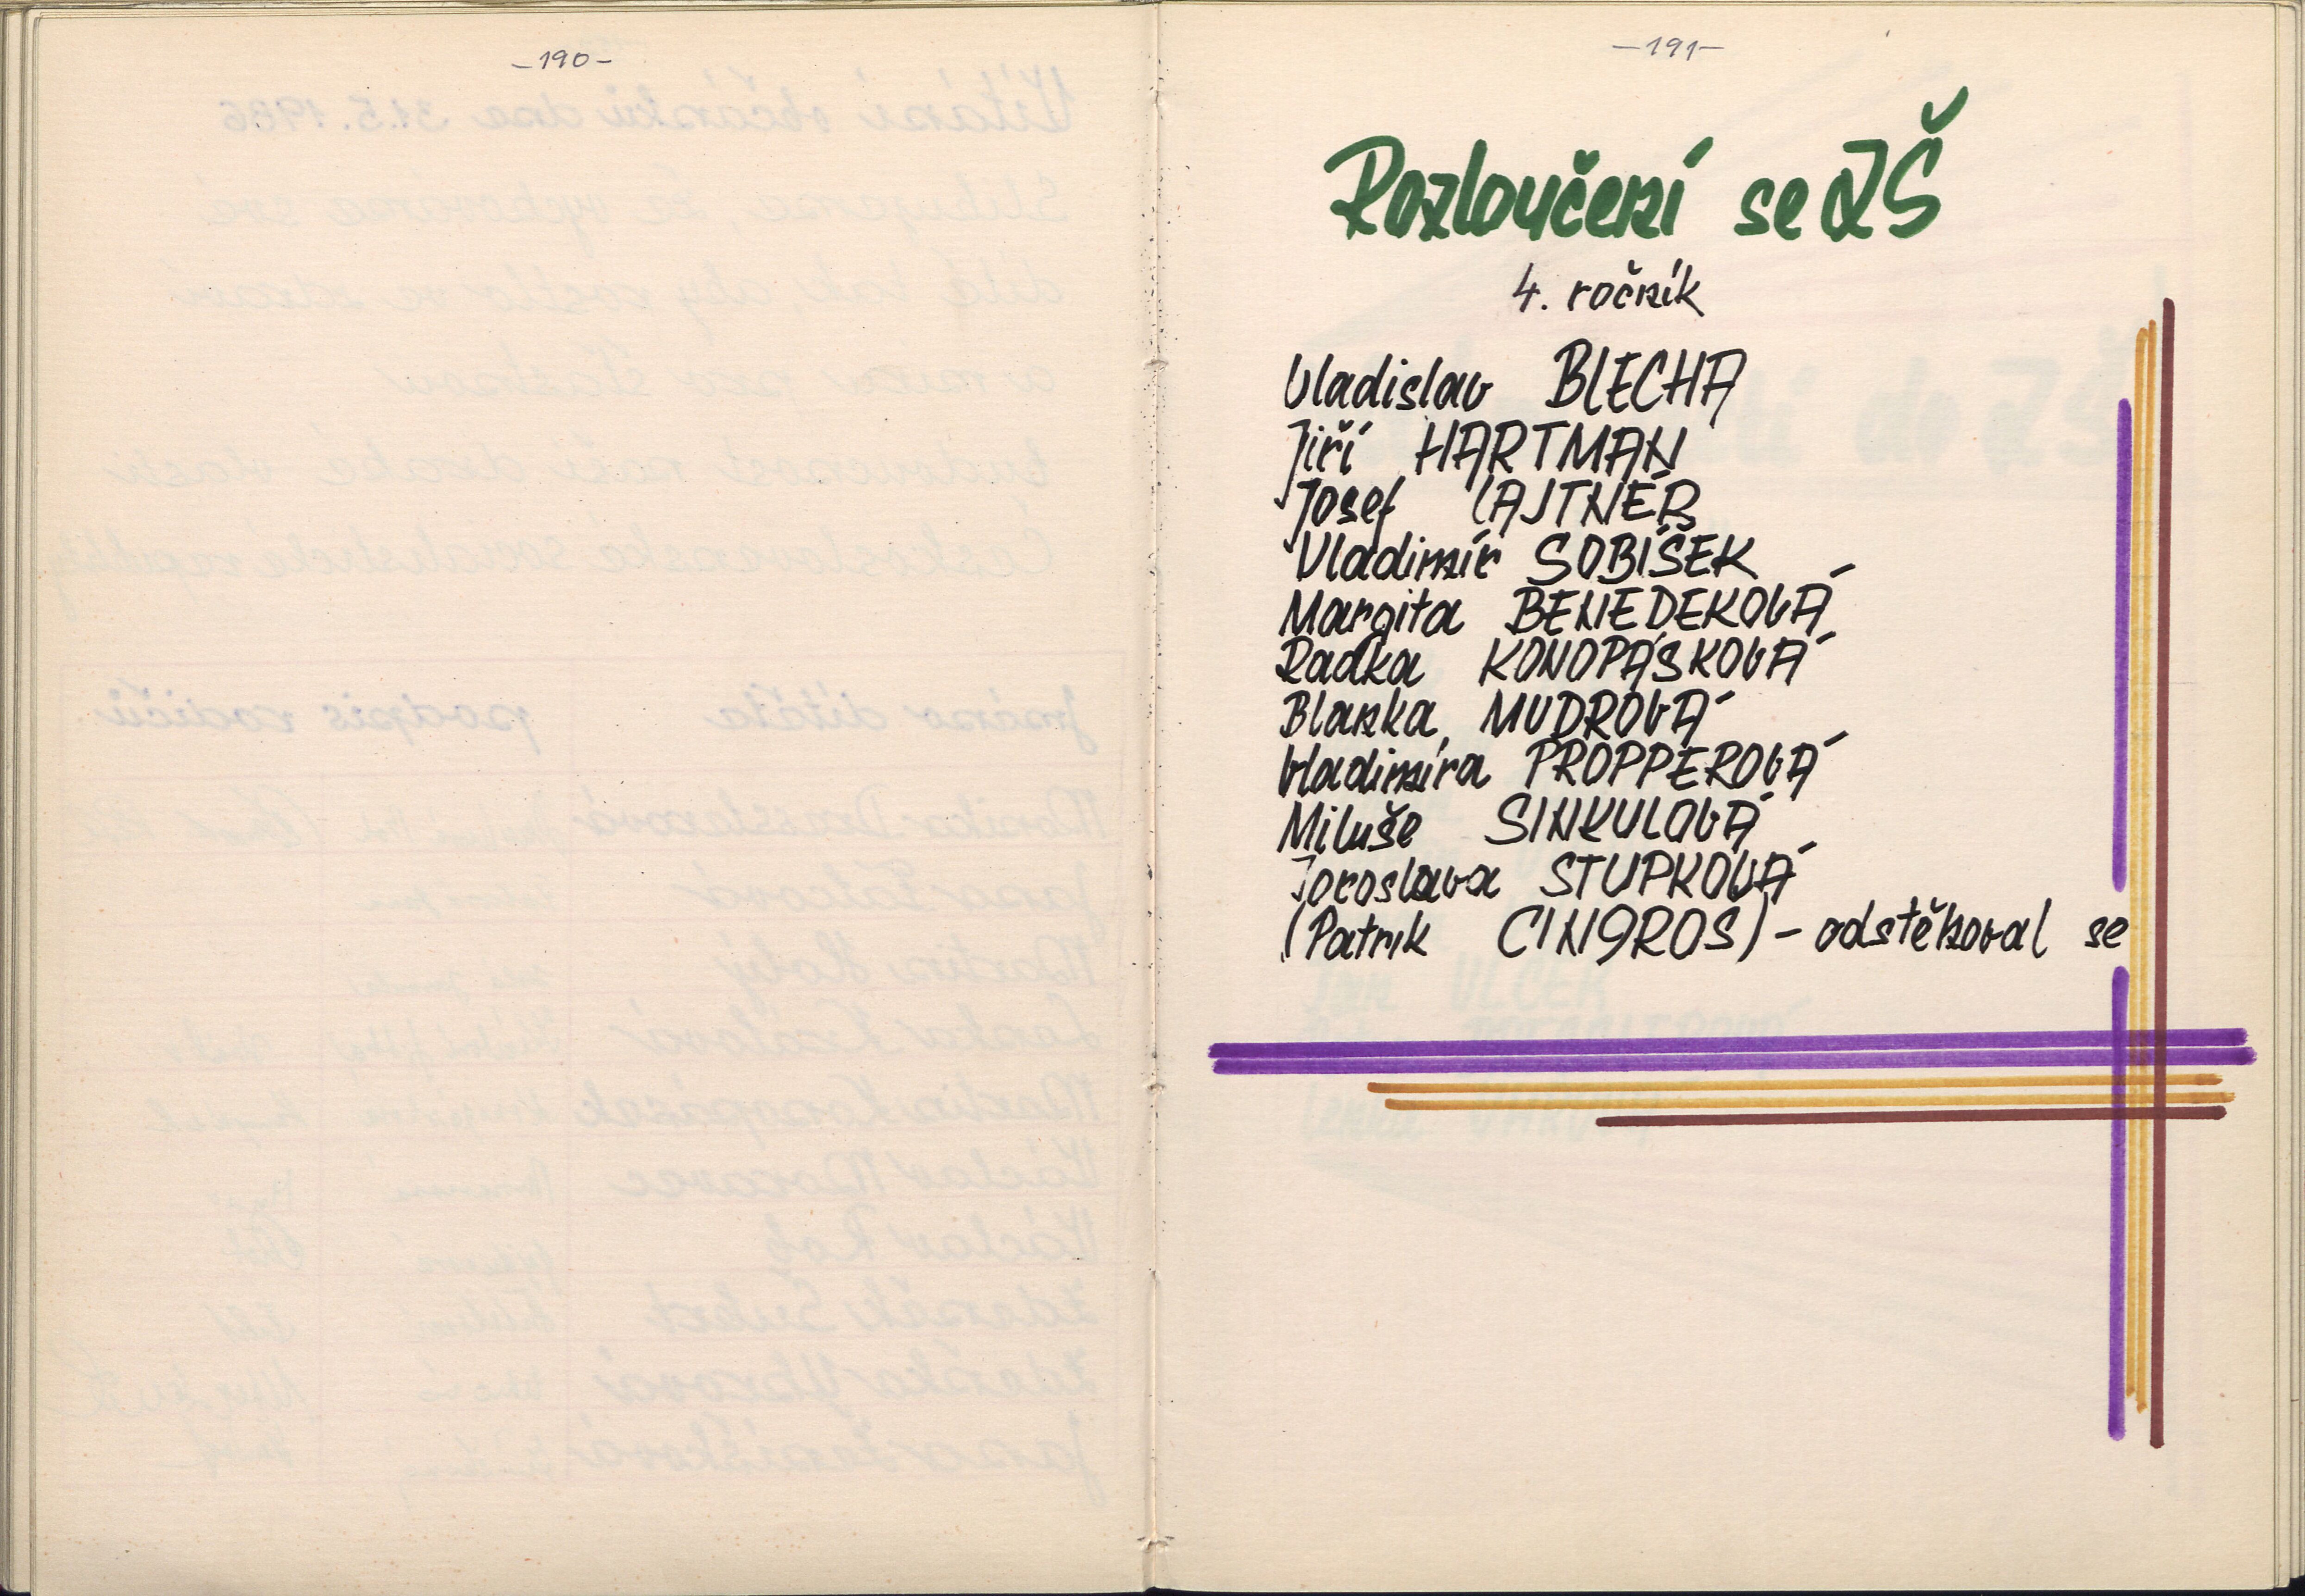 -190-
-191-
Rozloučení se ZŠ
4. ročník
Vladislav BLECHA
Jiří HARTMAN
Josef LAJTNER
Vladimír SOBÍŠEK
Margita BENEDEKOVÁ
Radka KONOPÁSKOVÁ
Blanka MUDROVÁ
Vladimíra PROPPEROVÁ
Miluše SINKULOVÁ
Jaroslava STUPKOVÁ
(Patrik CINGROS) - odstěhoval se